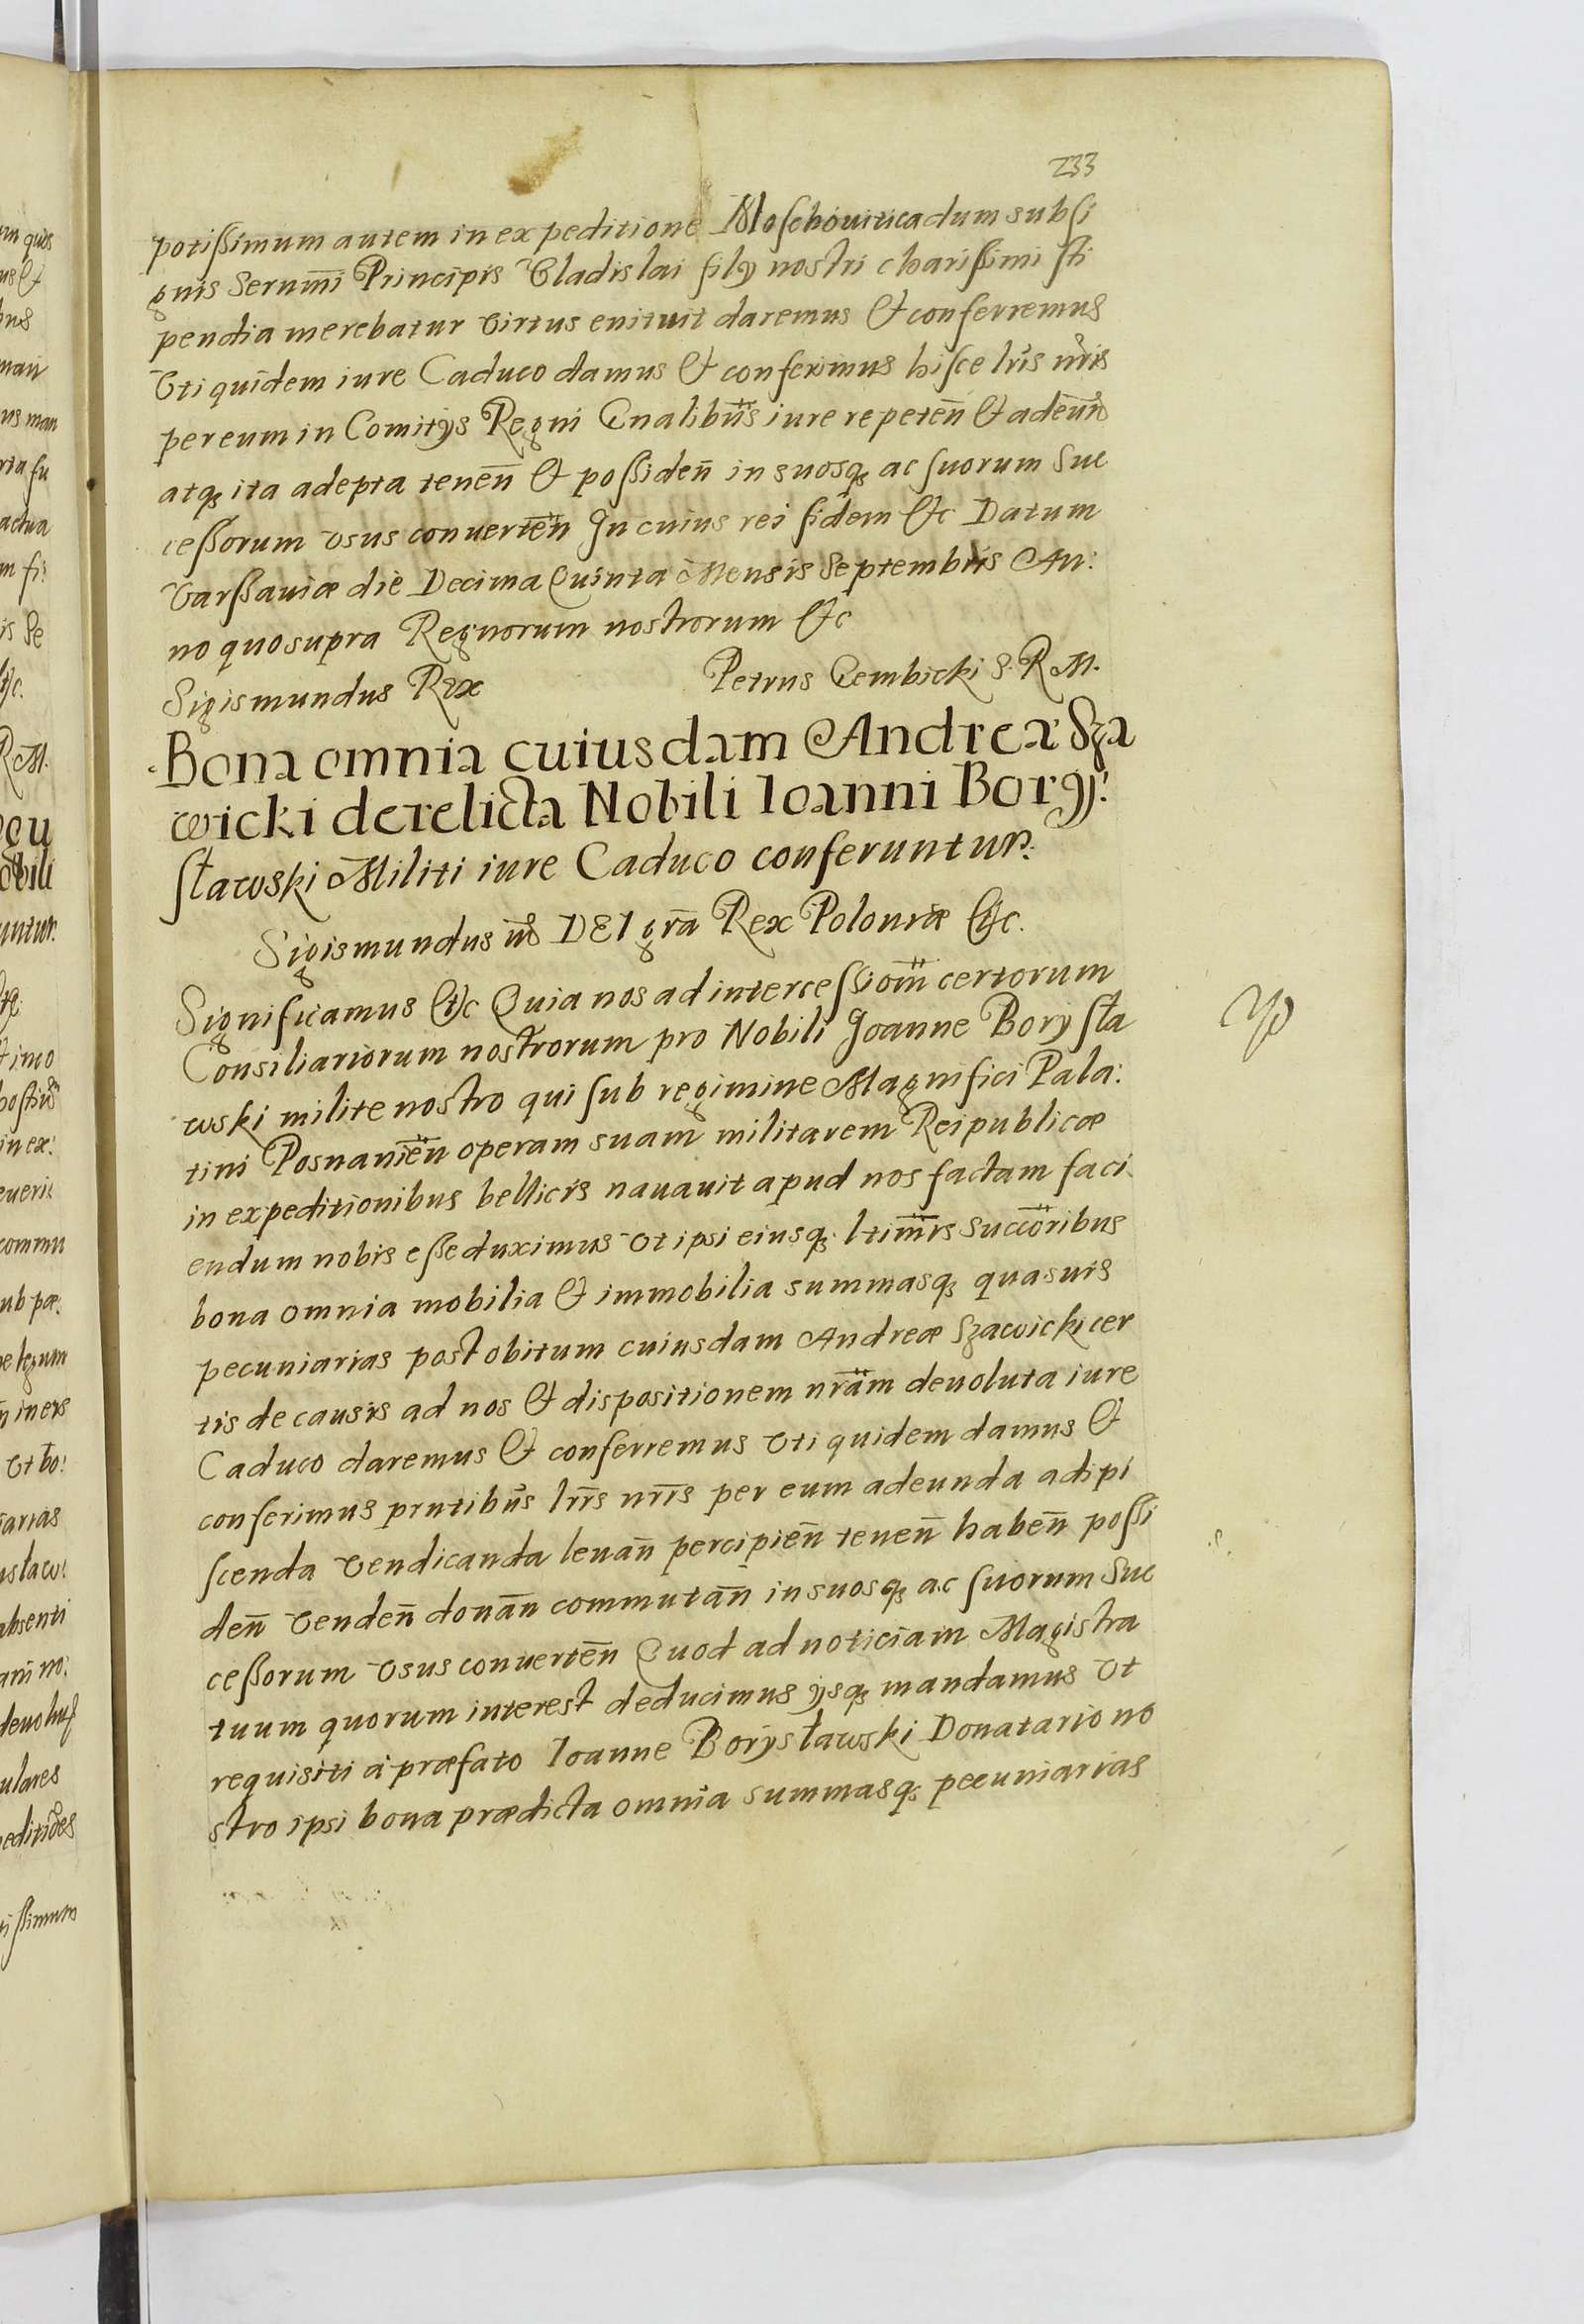 233
potißimum autem in expeditione Moschouitica dum subsi
gnis Serenmi Principis Vladislai filij nostri charißimi sti
pendia merebatur virtus enituit daremus et conferremus
Vti quidem iure Caduco damus et conferimus hisce lris nris
per eum in Comitijs Regni Gnalibus iure repeten̄ et adeund
atq3 ita adepta tenen̄ et poßiden̄ in suosq3 ac suorum Suc
ceßorum vsus conuerten̄ In cuius rei fidem etc Datum
Varßauiæ die Decima Quinta Mensis Septembris An:
no quo supra Regnorum nostrorum etc
Sigismundus Rex Petrus Gembicki S. R. M.
Bona omnia cuiusdam Andreæ Sza
wicki derelicta Nobili Ioanni Bory:
sławski Militi iure Caduco conferuntur.
Sigismundus iiis DEI gra Rex Poloniæ etc.
Significamus etc Quia nos ad intercessiom̄ certorum
Consiliariorum nostrorum pro Nobili Joanne Borysła
wski milite nostro qui sub regimine Magnifici Pala:
tini Posnanien̄ operam suam militarem Reipublicæ
in expeditionibus bellicis nauauit apud nos factam faci
endum nobis eße duximus vt ipsi eiusq3 ltimis succoribus
bona omnia mobilia et immobilia summasq3 quasuis
pecuniarias post obitum cuiusdam Andreæ Szawicki cer
tis de causis ad nos et dispositionem nram deuoluta iure
Caduco daremus et conferremus vti quidem damus et
conferimus prntibus lris nris per eum adeunda adipi
scenda vendicanda leuan̄ percipien̄ tenen̄ haben̄ poßi
den̄ venden̄ donan̄ commutan̄ in suosq3 ac suorum Suc
ceßorum vsus conuerten̄ Quod ad noticiam Magistra
tuum quorum interest deducimus ijsq3 mandamus vt
requisiti à præfato Ioanne Borysławski Donatario no
stro ipsi bona prædicta omnia summasq3 pecuniarias